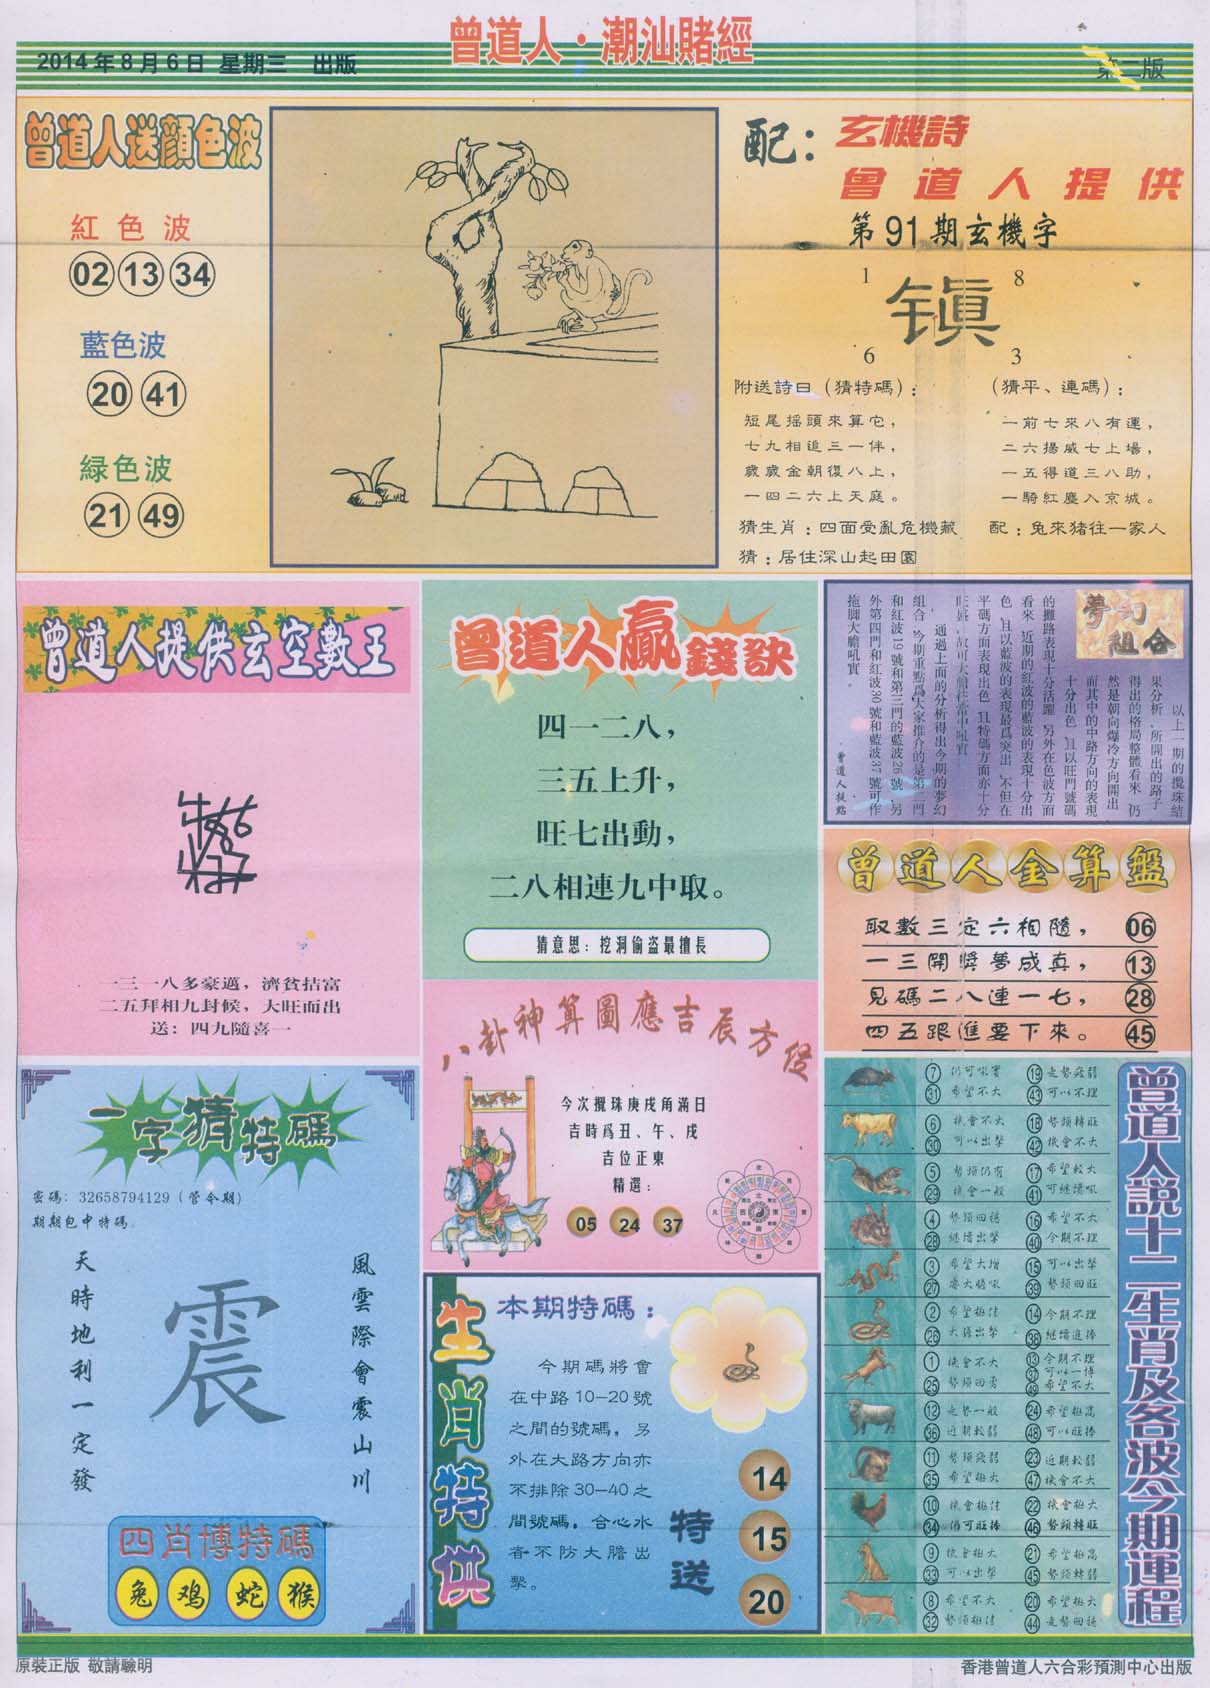 曾道人·潮汕賭經
2014年8月6日 星期三 出版
第二版
曾道人送顏色波
紅色波
02 13 34
藍色波
20 41
緑色波
21 49
配:玄機詩
曾道人提供
第91期玄機字
1 8
6 3
附送詩曰(猜特碼):
短尾摇頭來算它,
七九相追三一伴,
歲歲金朝復八上,
一四二六上天庭。
(猜平、連碼):
一前七來八有運,
二六揚威七上場,
一五得道三八助,
一騎紅塵入京城。
猜生肖:四面受亂危機藏
配:兔來猪往一家人
猜:居住深山起田園
曾道人提供玄空數王
一三一八多豪邁,濟貧拮富
二五拜相九封候,大旺而出
送:四九隨喜一
曾道人贏錢訣
四一二八,
三五上升,
旺七出動,
二八相連九中取。
猜意思:挖洞偷盗最擅長
夢幻組合
以上一期的攪珠結
果分析,所開出的路子
得出的格局整體看來,仍
然是朝向爆冷方向開出
而其中的中路方向的表現
十分出色,且以旺門號碼
的攤路表現十分活躍,另外在色波方面
看來,近期的紅波的藍波的表現十分出
色,且以藍波的表現最爲突出,不但在
平碼方面表現出色,且特碼方面亦十分
通過上面的分析得出今期的夢幻
組合,今期重點爲大家推介的是第二門
和紅波19號和第三門的藍波26號,另
外第四門和紅波30號和藍波37號可作
拖脚大膽吼實。
曾道人提點
曾道人金算盤
取數三定六相隨, 06
一三開獎夢成真, 13
見碼二八連一七, 28
四五跟進要下來。 45
八卦神算圖應吉辰方位
今次攪珠庚戌角滿日
吉時爲丑、午、戌
吉位正東
精選:
05 24 37
一字猜特碼
密碼:32658794129(管令期)
期期包中特碼
天時地利一定發
震
風雲際會震山川
四肖博特碼
兔 鸡 蛇 猴
生肖特供
本期特碼:
今期碼將會
在中路10-20號
之間的號碼,另
外在大路方向亦
不排除30-40之
間號碼,合心水
者不防大膽出
擊。
特送
14
15
20
曾道人説十二生肖及各波今期運程
7 仍可吼實 19 走勢疲弱
31 希望不大 43 可以不理
6 機會不大 18 勢頭轉旺
30 可以出擊 42 機會不大
5 勢頭仍有 17 希望較大
29 機會一般 41 可繼續吼
4 勢頭回穩 16 希望不大
28 繼續出擊 40 今期不理
3 希望大增 15 可以出擊
27 39 勢頭回旺
2 希望極佳 14 今期不理
26 大膽出擊 38 繼續追捧
1 機會不大 13 今期不理
37 可以一博
25 勢頭回勇 49 希望不大
12 走勢一般 24 希望極高
36 近期較弱 48 可以旺捧
11 勢頭疲弱 23 近期較弱
35 希望極大 47 機會不大
10 機會極佳 22 機會極大
34 仍可旺捧 46 勢頭轉旺
9 機會極大 21 希望極高
33 可以出擊 45 勢頭轉弱
8 希望不大 20 希望極大
32 勢頭極佳 44 走勢回穩
原裝正版 敬請驗明
香港曾道人六合彩預測中心出版